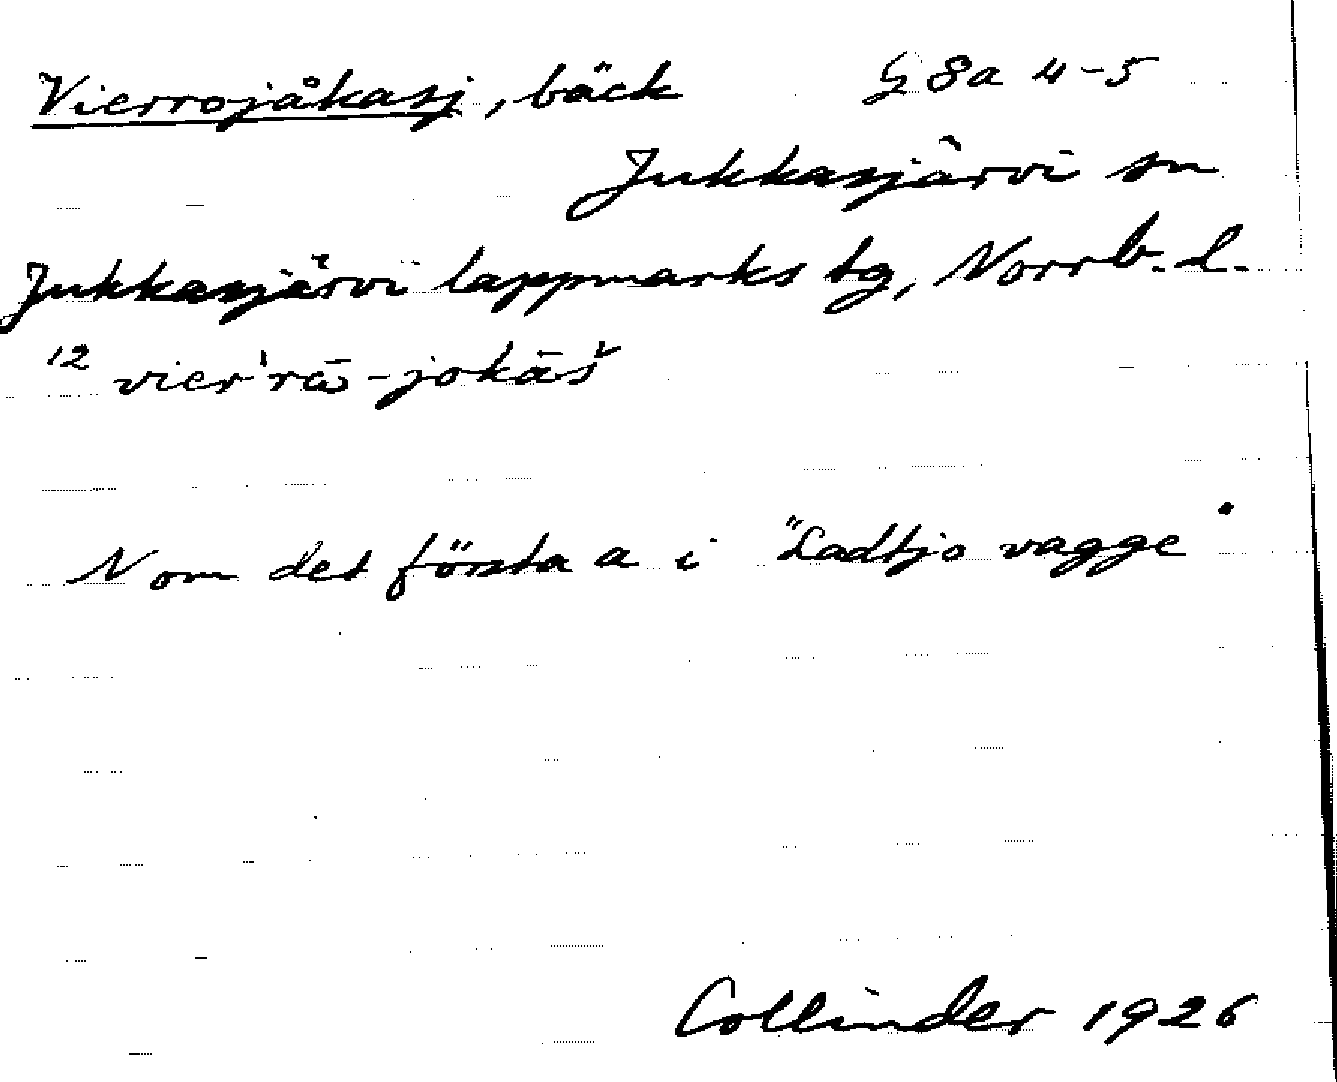 Vierrojåkasj, bäck G 8a 4-5
Jukkasjärvi sn
Jukkasjärvi lappmarks tg, Norrb. l.
12 vier'rā-jokāš
N om det första a i "Ladtjo vagge"
Collinder 1926